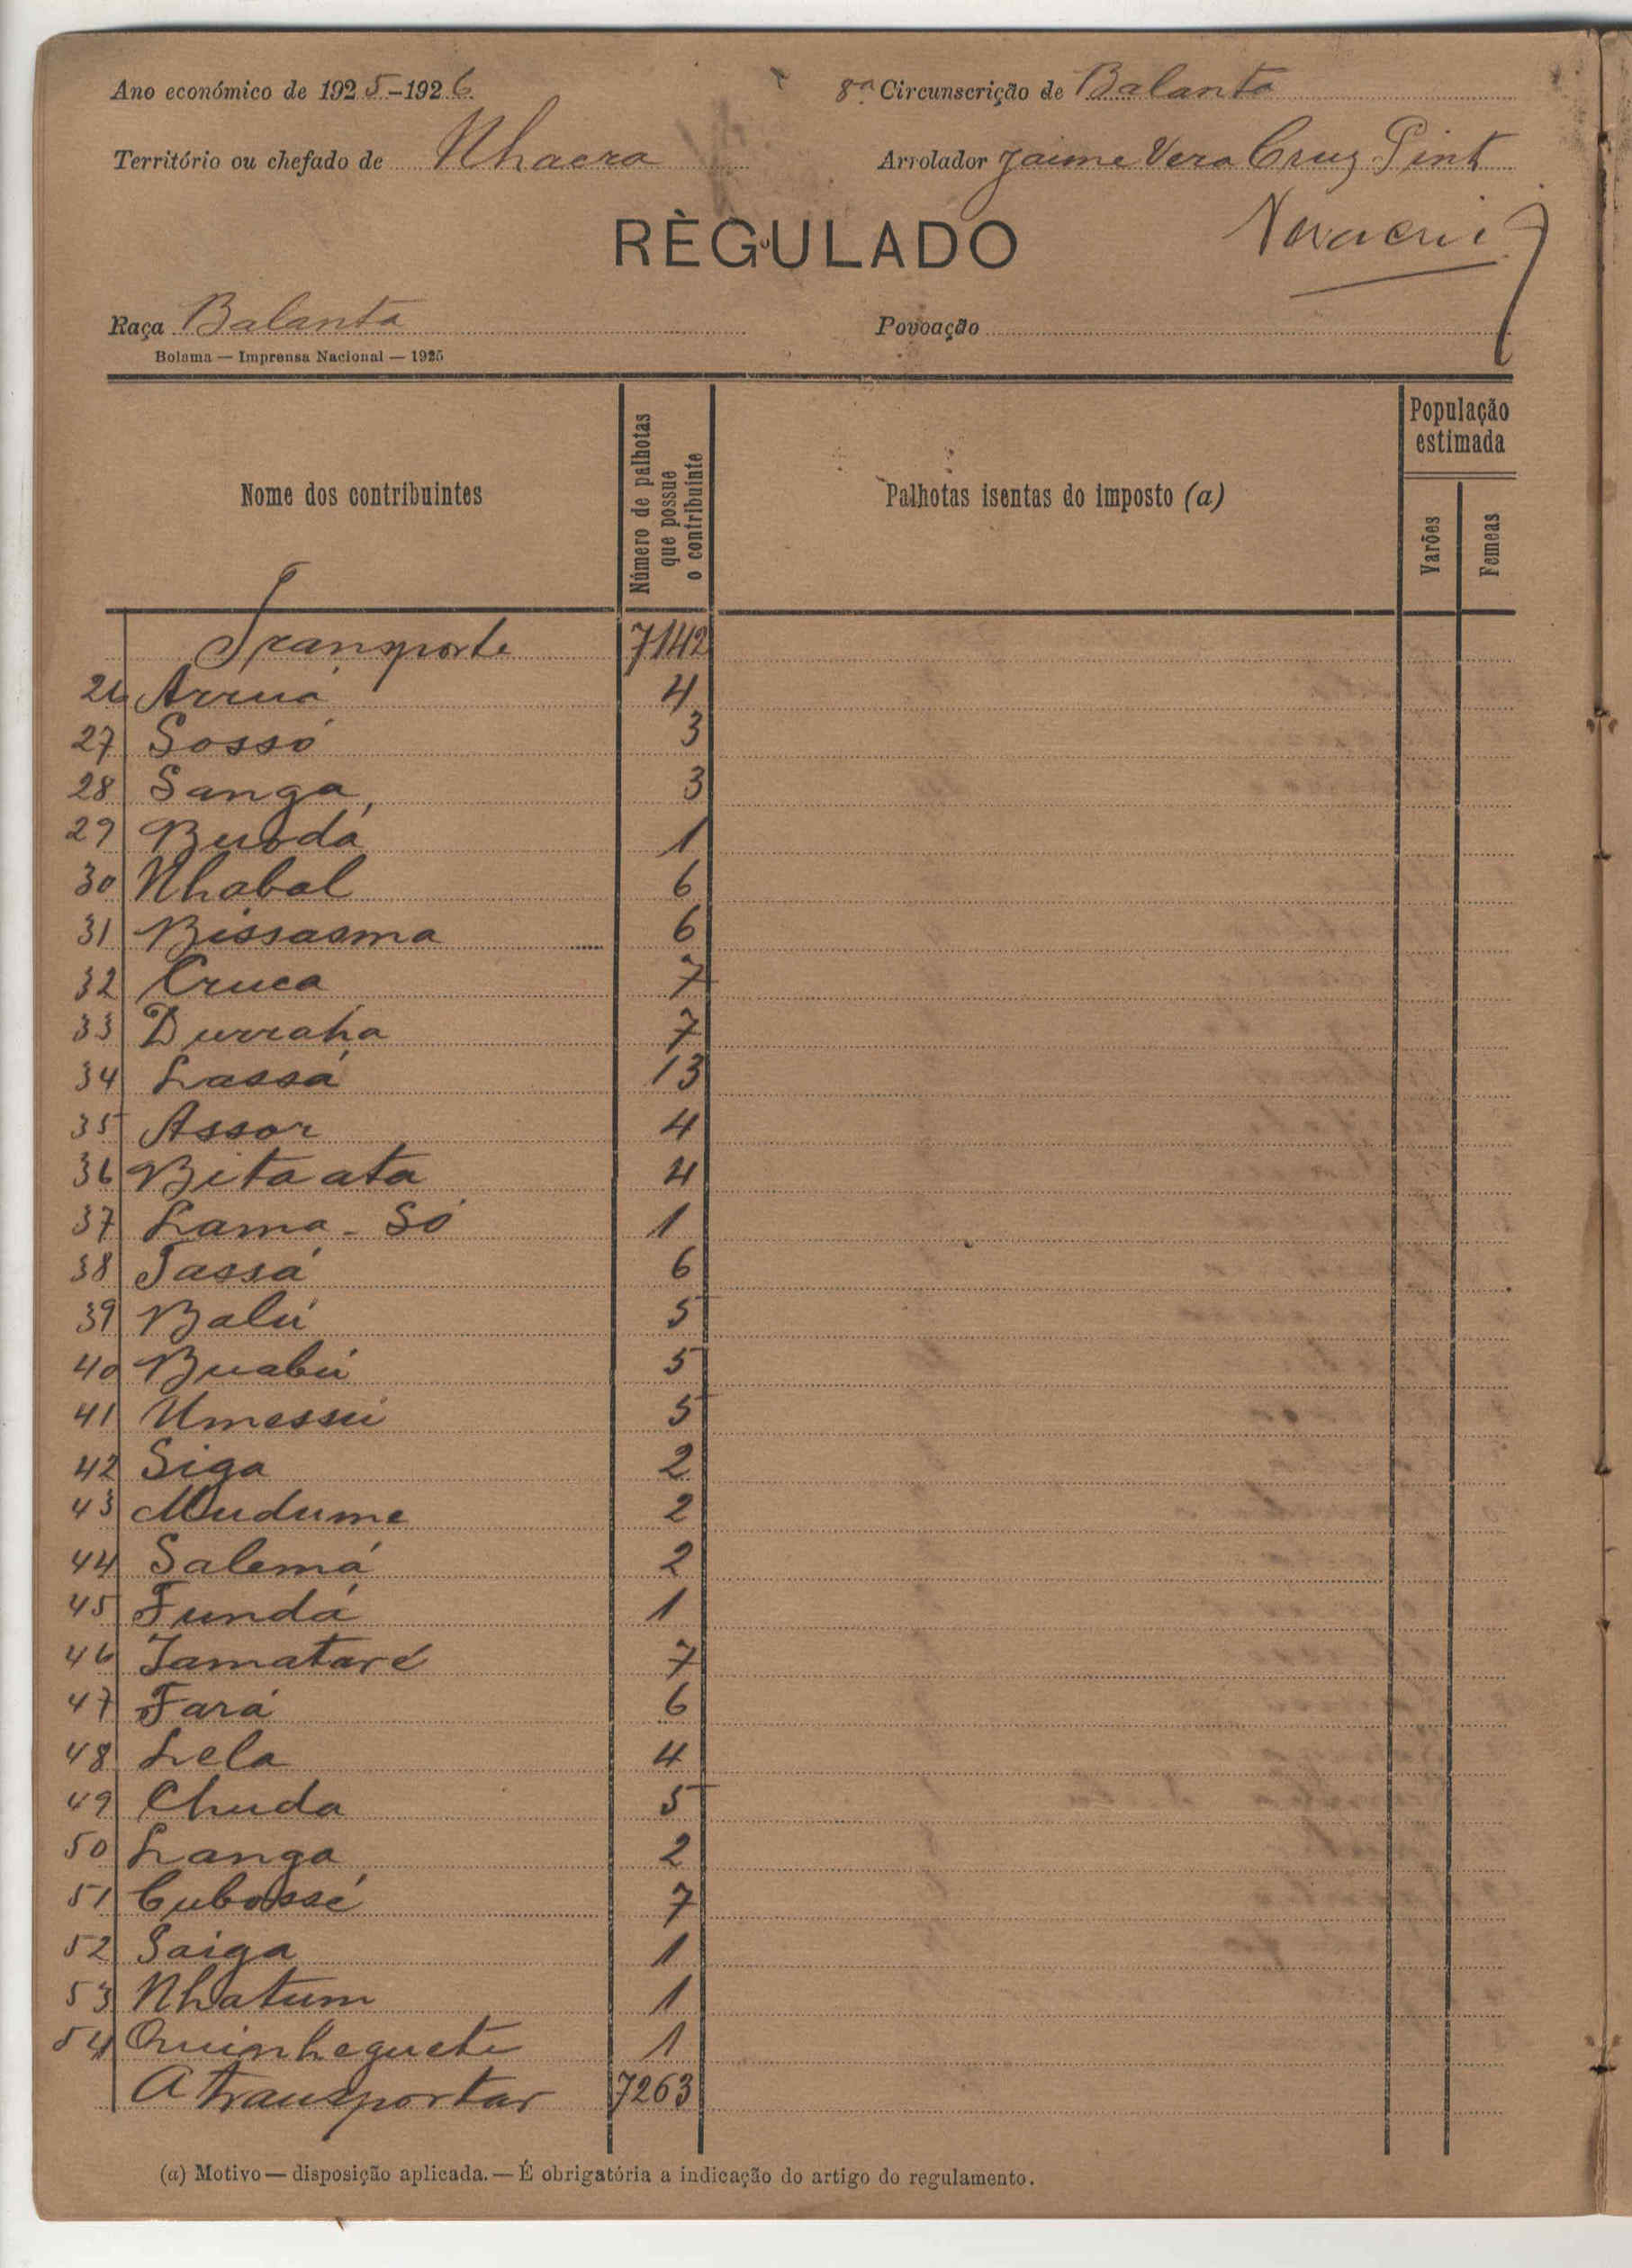 Ano económico de 1925-1926
8ª Circunscrição de Balanta
Território ou chefado de Nhacra
Arrolador Jaime Vera Cruz Pint
RÈGULADO
Raça Balanta
Povoação
Bolama — Imprensa Nacional — 1925
Nome dos contribuintes
Número de palhotas que possue o contribuinte
Palhotas isentas do imposto (a)
População estimada
Varões
Femeas
Transporte 7142
26 Arruá 4
27 Sossó 3
28 Sanga 3
29 Buodá 1
30 Nhabal 6
31 Bissasma 6
32 Cruca 7
33 Durraha 7
34 Lassá 13
35 Assor 4
36 Bitaata 4
37 Lama - Só 1
38 Tassá 6
39 Balú 5
40 Buabú 5
41 Umessú 5
42 Siga 2
43 Mudume 2
44 Salemá 2
45 Fundá 1
46 Tamataré 7
47 Fará 6
48 Lela 4
49 Chuda 5
50 Langa 2
51 Cubossé 7
52 Saiga 1
53 Nhatum 1
54 Quinheguete 1
A transportar 7263
(a) Motivo — disposição aplicada. — É obrigatória a indicação do artigo do regulamento.